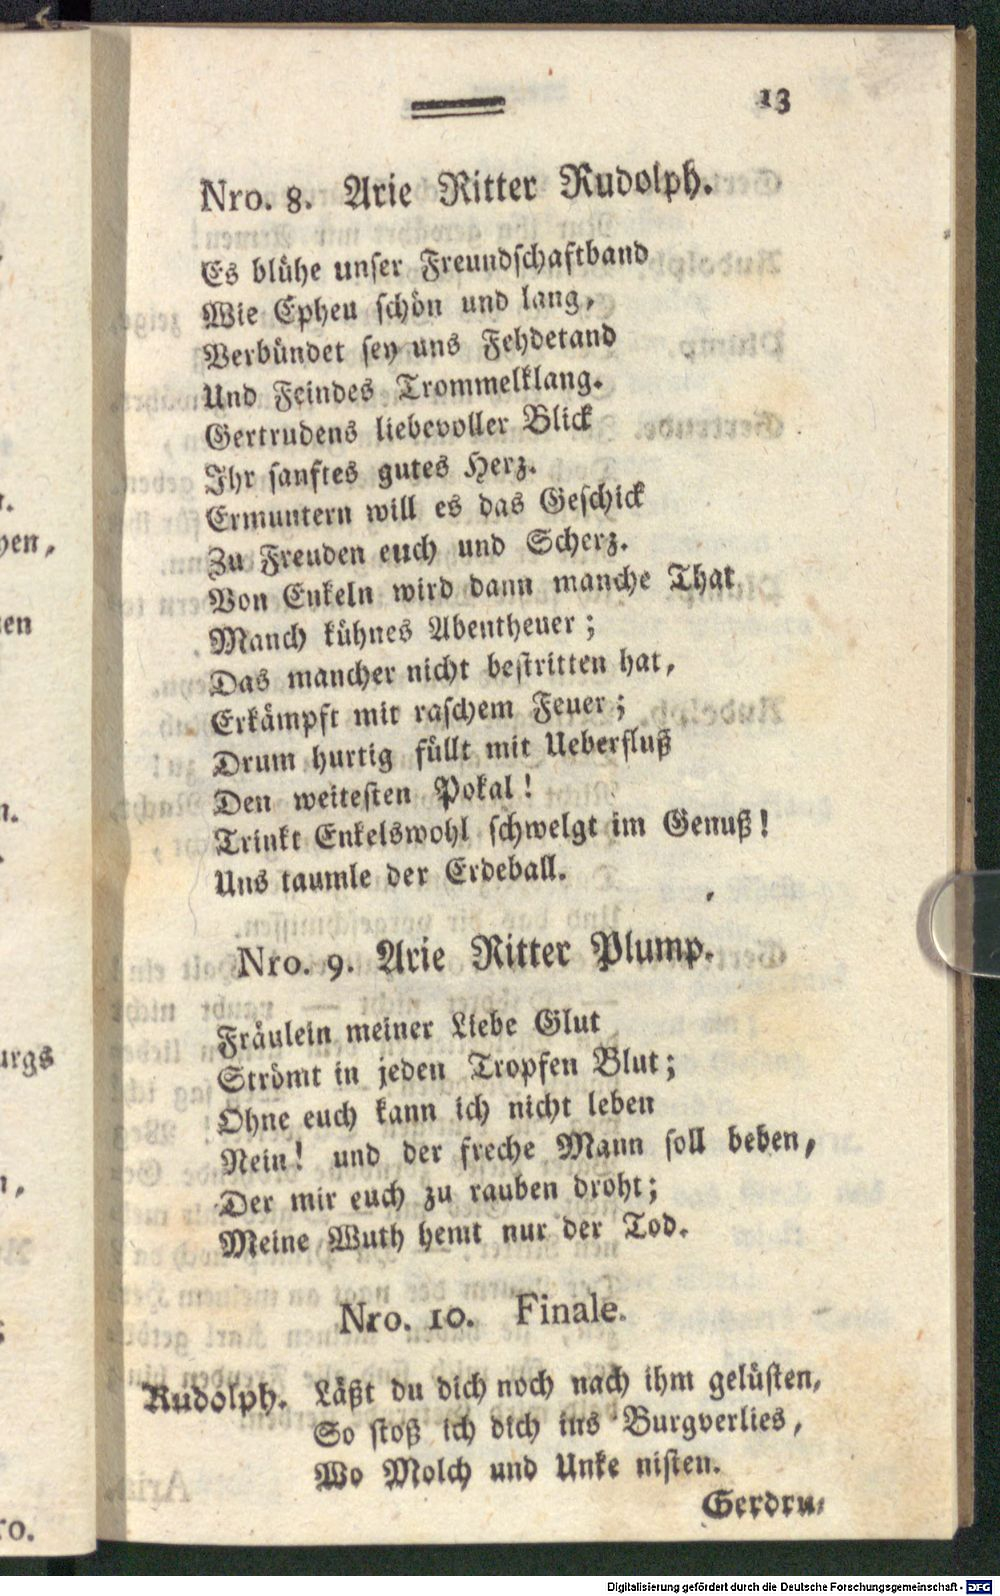 13
Nro. 8. Arie Ritter Rudolph.
Es blühe unser Freundschaftband
Wie Epheu schön und lang,
Verbündet sey uns Fehdetand
Und Feindes Trommelklang.
Gertrudens liebevoller Blick
Ihr sanftes gutes Herz.
Ermuntern will es das Geschick
Zu Freuden euch und Scherz.
Von Enkeln wird dann manche That
Manch kühnes Abentheuer;
Das mancher nicht bestritten hat,
Erkämpft mit raschem Feuer;
Drum hurtig füllt mit Ueberfluß
Den weitesten Pokal!
Trinkt Enkelswohl schwelgt im Genuß!
Uns taumle der Erdeball.
Nro. 9. Arie Ritter Plump.
Fräulein meiner Liebe Glut
Strömt in jeden Tropfen Blut;
Ohne euch kann ich nicht leben
Nein! und der freche Mann soll beben,
Der mir euch zu rauben droht;
Meine Wuth hemt nur der Tod.
Nro. 10. Finale.
Rudolph. Läßt du dich noch nach ihm gelüsten,
So stoß ich dich ins Burgverlies,
Wo Molch und Unke nisten.
Gerdru-
Digitalisierung gefördert durch die Deutsche Forschungsgemeinschaft - DFG